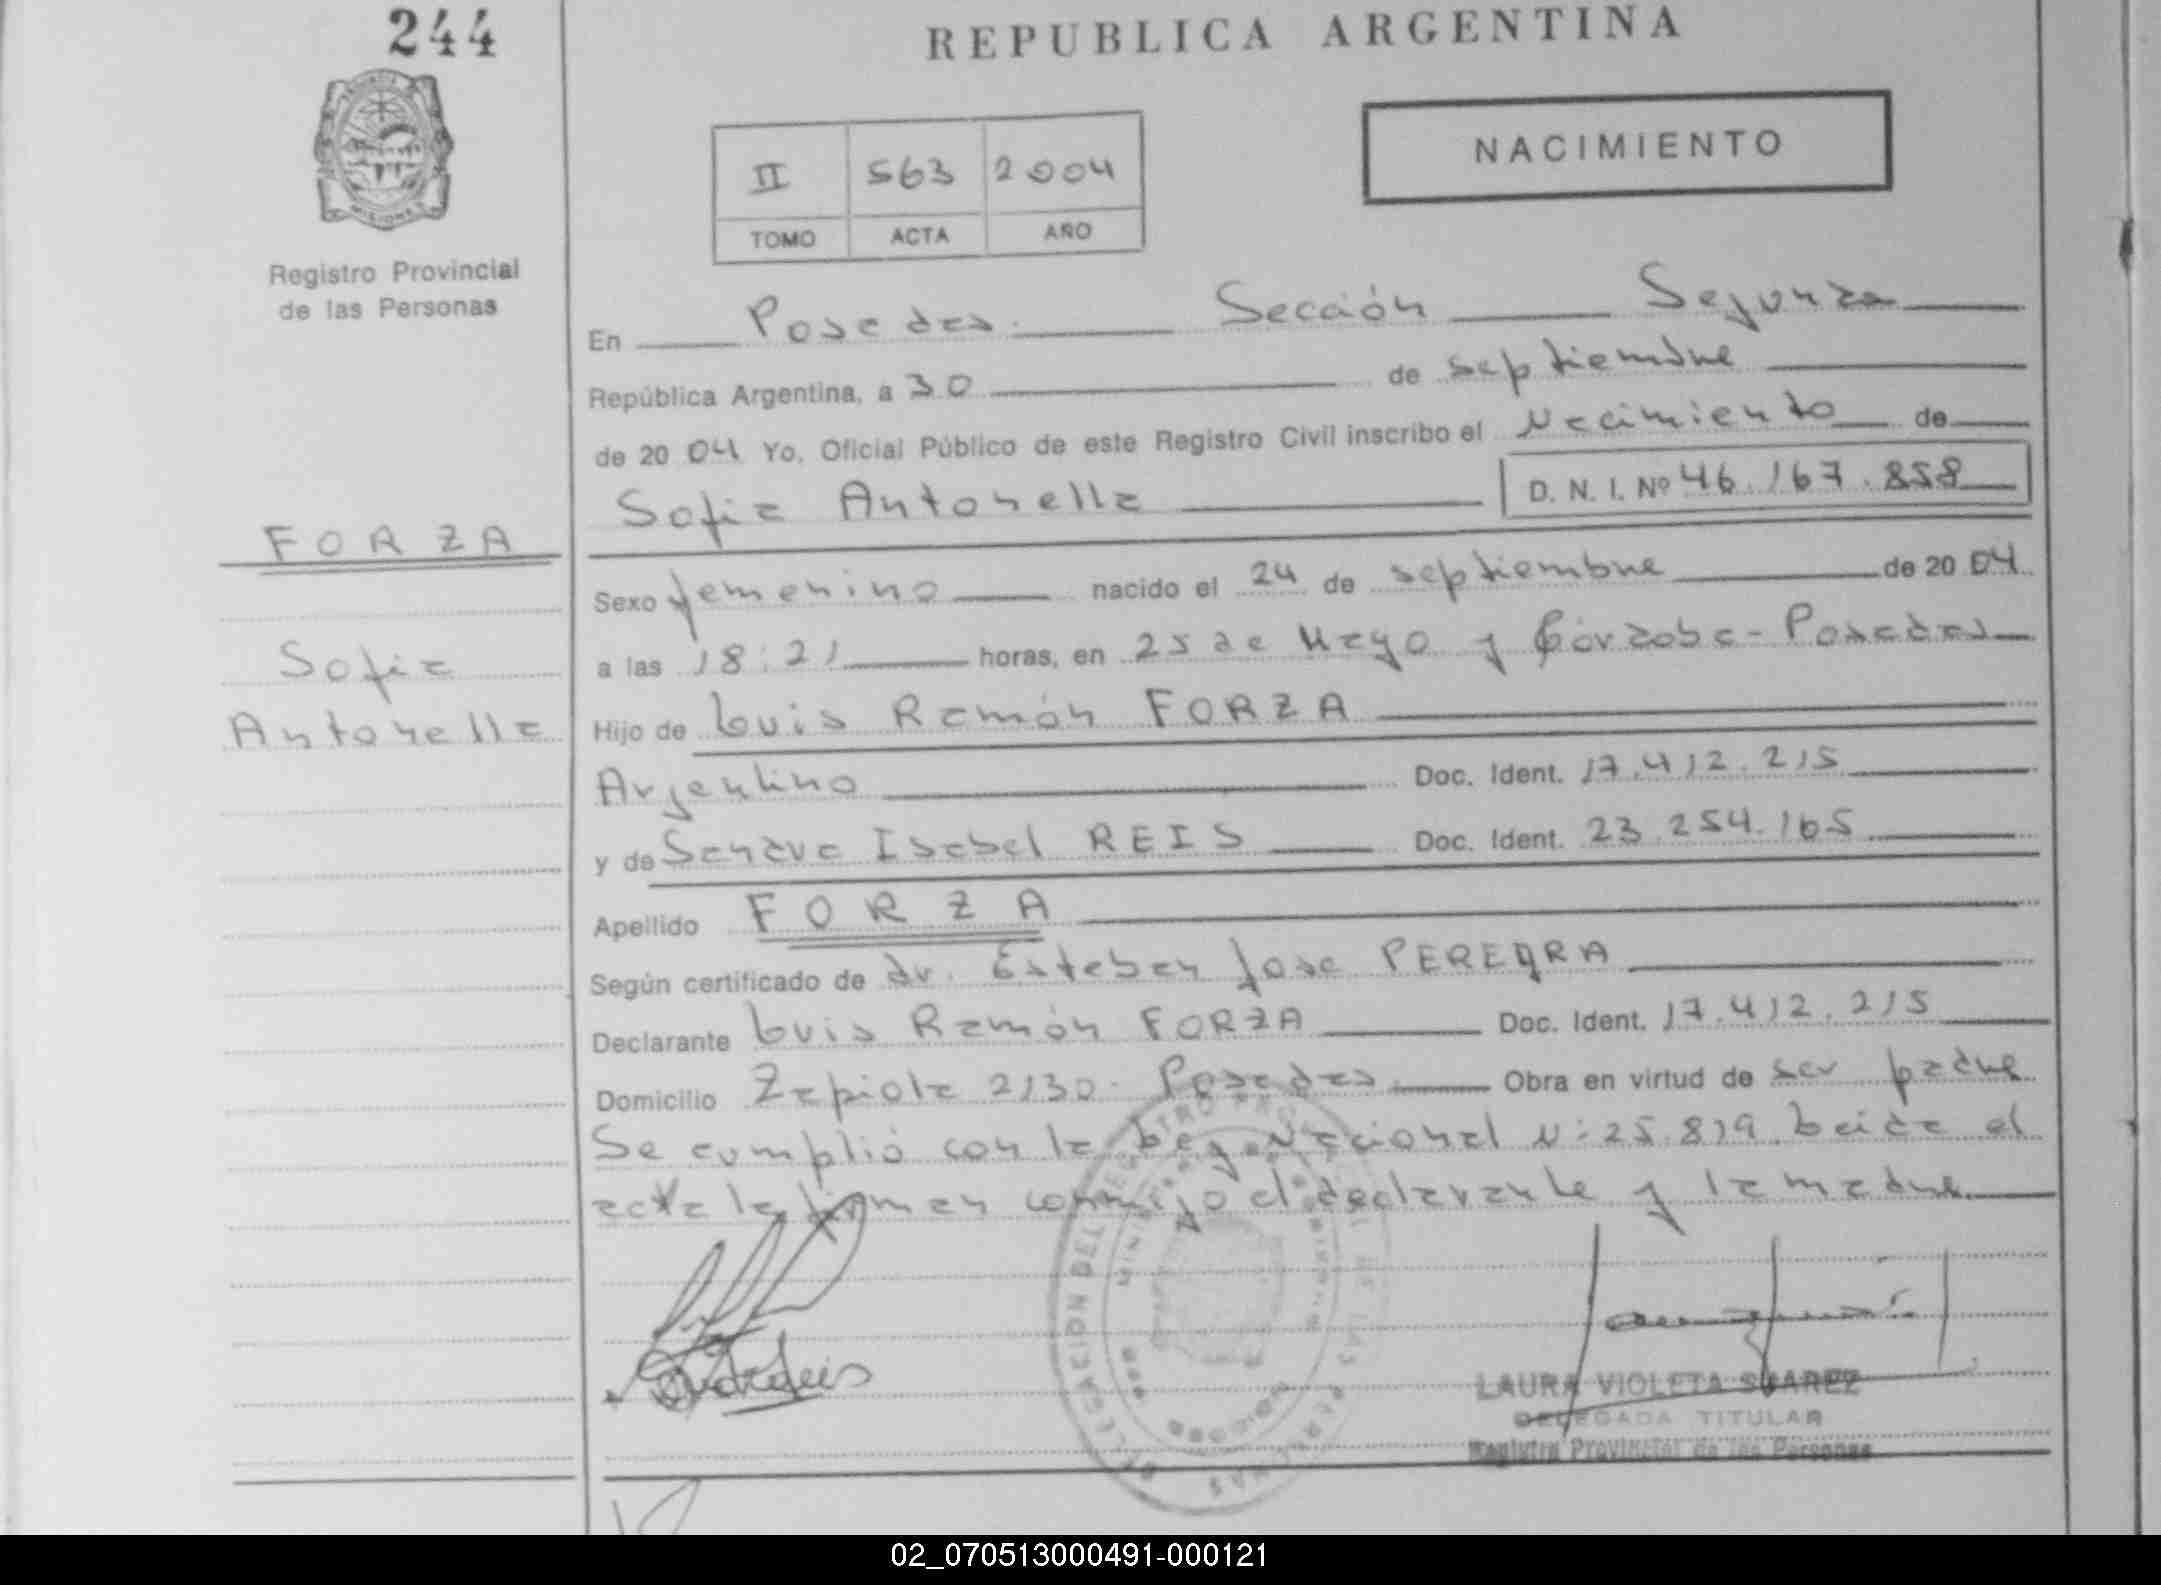 244
REPUBLICA ARGENTINA
MISIONES
Registro Provincial
de las Personas
NACIMIENTO
II 563 2004
TOMO ACTA AÑO
En Posadas Sección Segunda
República Argentina, a 30 de septiembre
de 2004 Yo, Oficial Público de este Registro Civil inscribo el Nacimiento de
Sofia Antonella D. N. I. Nº 46.167.858
FORZA
Sofia
Antonella
Sexo femenino nacido el 24 de septiembre de 2004
a las 18:21 horas, en 25 de Mayo y Córdoba - Posadas
Hijo de Luis Ramón FORZA
Argentino Doc. Ident. 17.412.215
y de Sandra Isabel REIS Doc. Ident. 23.254.165
Apellido FORZA
Según certificado de dr. Esteban Jose
Declarante Luis Ramón FORZA Doc. Ident. 17.412.215
Domicilio Zapiola 2130 - Posadas Obra en virtud de ser padre
Se cumplió con la Ley Nacional N: 25.819. Leida el
acta la firman conmigo el declarante y la madre
DELEGACION DEL REGISTRO PROVINCIAL DE LAS PERSONAS
LAURA VIOLETA SUAREZ
DELEGADA TITULAR
Registro Provincial de las Personas
02_070513000491-000121